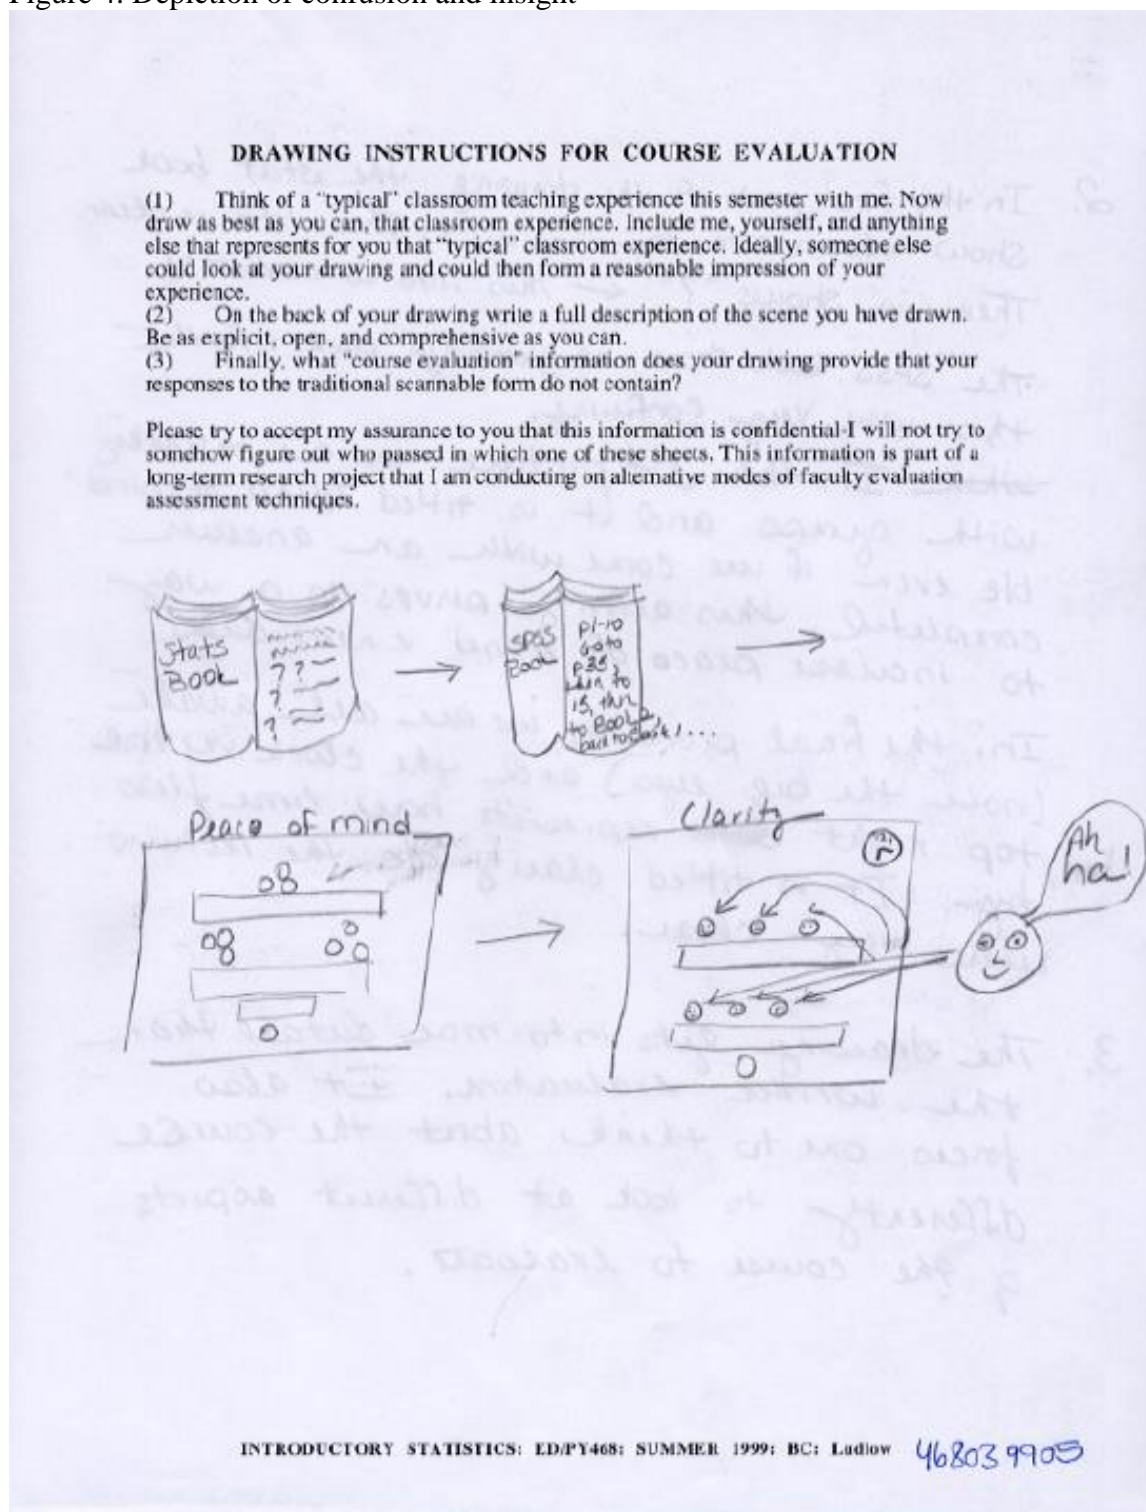 Figure 4. Depiction of confusion and insight
DRAWING INSTRUCTIONS FOR COURSE EVALUATION
(1) Think of a "typical" classroom teaching experience this semester with me. Now
draw as best as you can, that classroom experience. Include me, yourself, and anything
else that represents for you that "typical" classroom experience. Ideally, someone else
could look at your drawing and could then form a reasonable impression of your
experience.
(2) On the back of your drawing write a full description of the scene you have drawn.
Be as explicit, open, and comprehensive as you can.
(3) Finally, what "course evaluation" information does your drawing provide that your
responses to the traditional scannable form do not contain?
Please try to accept my assurance to you that this information is confidential-I will not try to
somehow figure out who passed in which one of these sheets. This information is part of a
long-term research project that I am conducting on alternative modes of faculty evaluation
assessment techniques.
Stats
BOOK
? ?
?
?
SPSS
BOOK
p1-10
Go to
p35,
then to
15, then
to BOOK 2,
back to Book 1...
Peace of mind
Clarity
Ah
ha!
INTRODUCTORY STATISTICS: ED/PY468: SUMMER 1999: BC: Ludlow 468039905